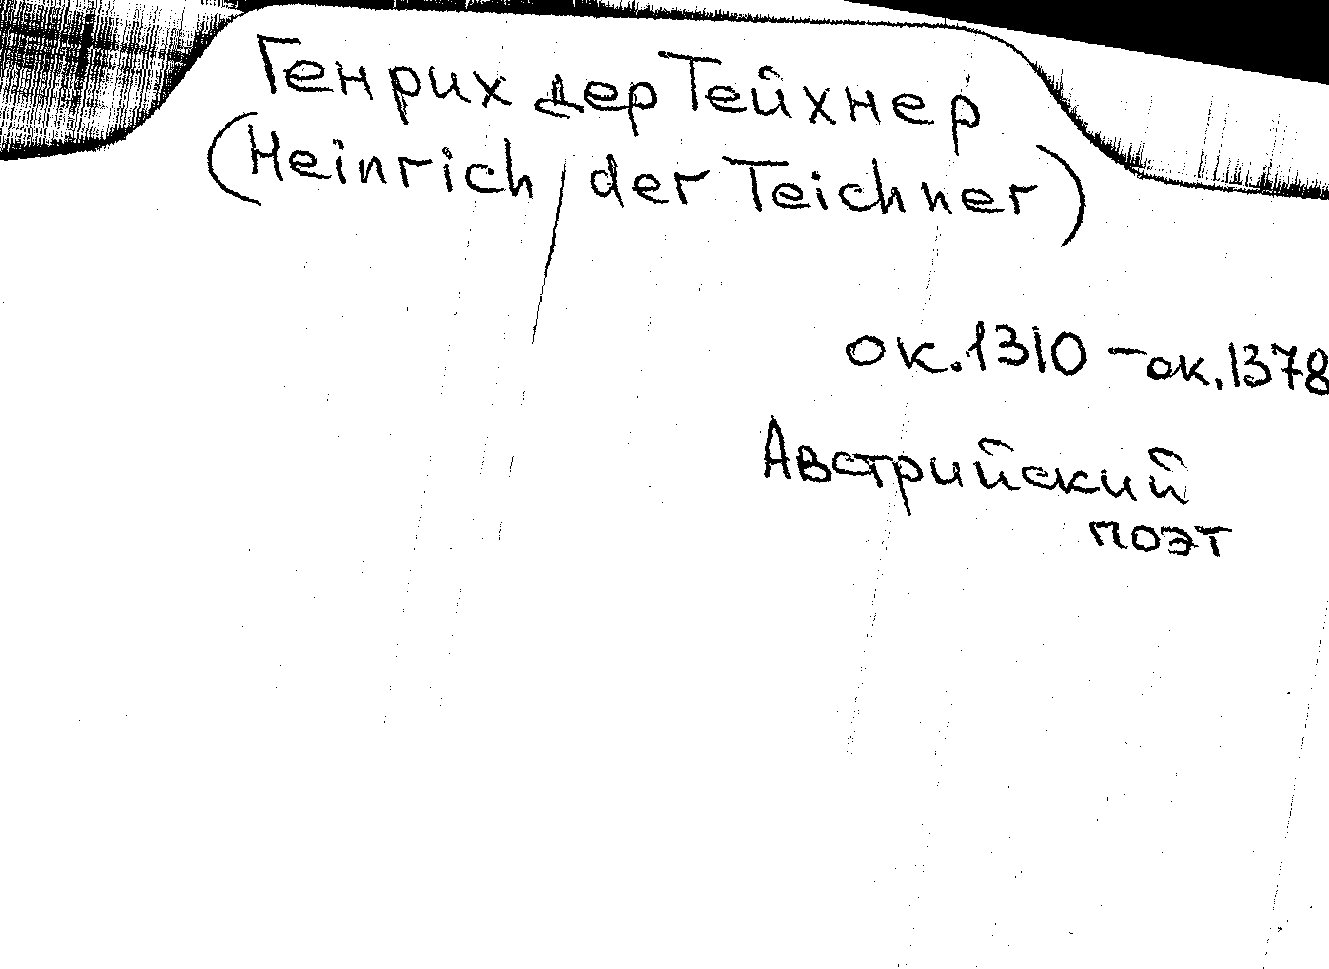 Генрих дер Тейхнер
(Heinrich der Teichner)
ок. 1310 – ок. 1378
Австрийский
поэт